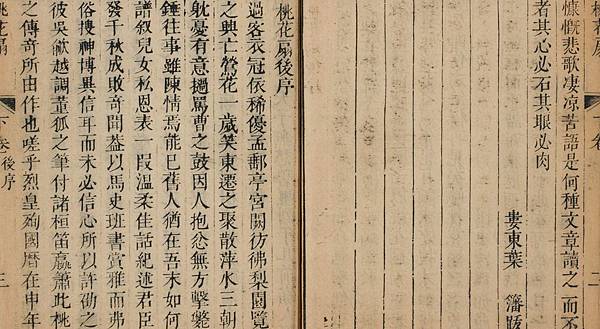 桃花扇
下卷
二
慷慨悲歌凄凉苦語是何種文章讀之而不
者其心必石其眼必肉
婁東葉 籓跋
桃花扇後序
過客衣冠依稀優孟郵亭宮闕彷彿梨園覽
之興亡鶯花一歲笑東遷之聚散萍水三朝
躭憂有意撾罵曹之鼓因人抱忿無方擊
錘往事雖陳情焉能已舊人猶在吾末如何
譜叙兒女私恩表一段温柔佳話紀述君臣
發千秋成敗奇聞葢以馬史班書賞雅而弗
俗搜神博異信耳而未必信心所以許劭之
彼吳歈越調董狐之筆付諸桓笛嬴簫此桃
之傳奇所由作也嗟乎烈皇殉國曆在申年
桃花扇
下卷後序
三